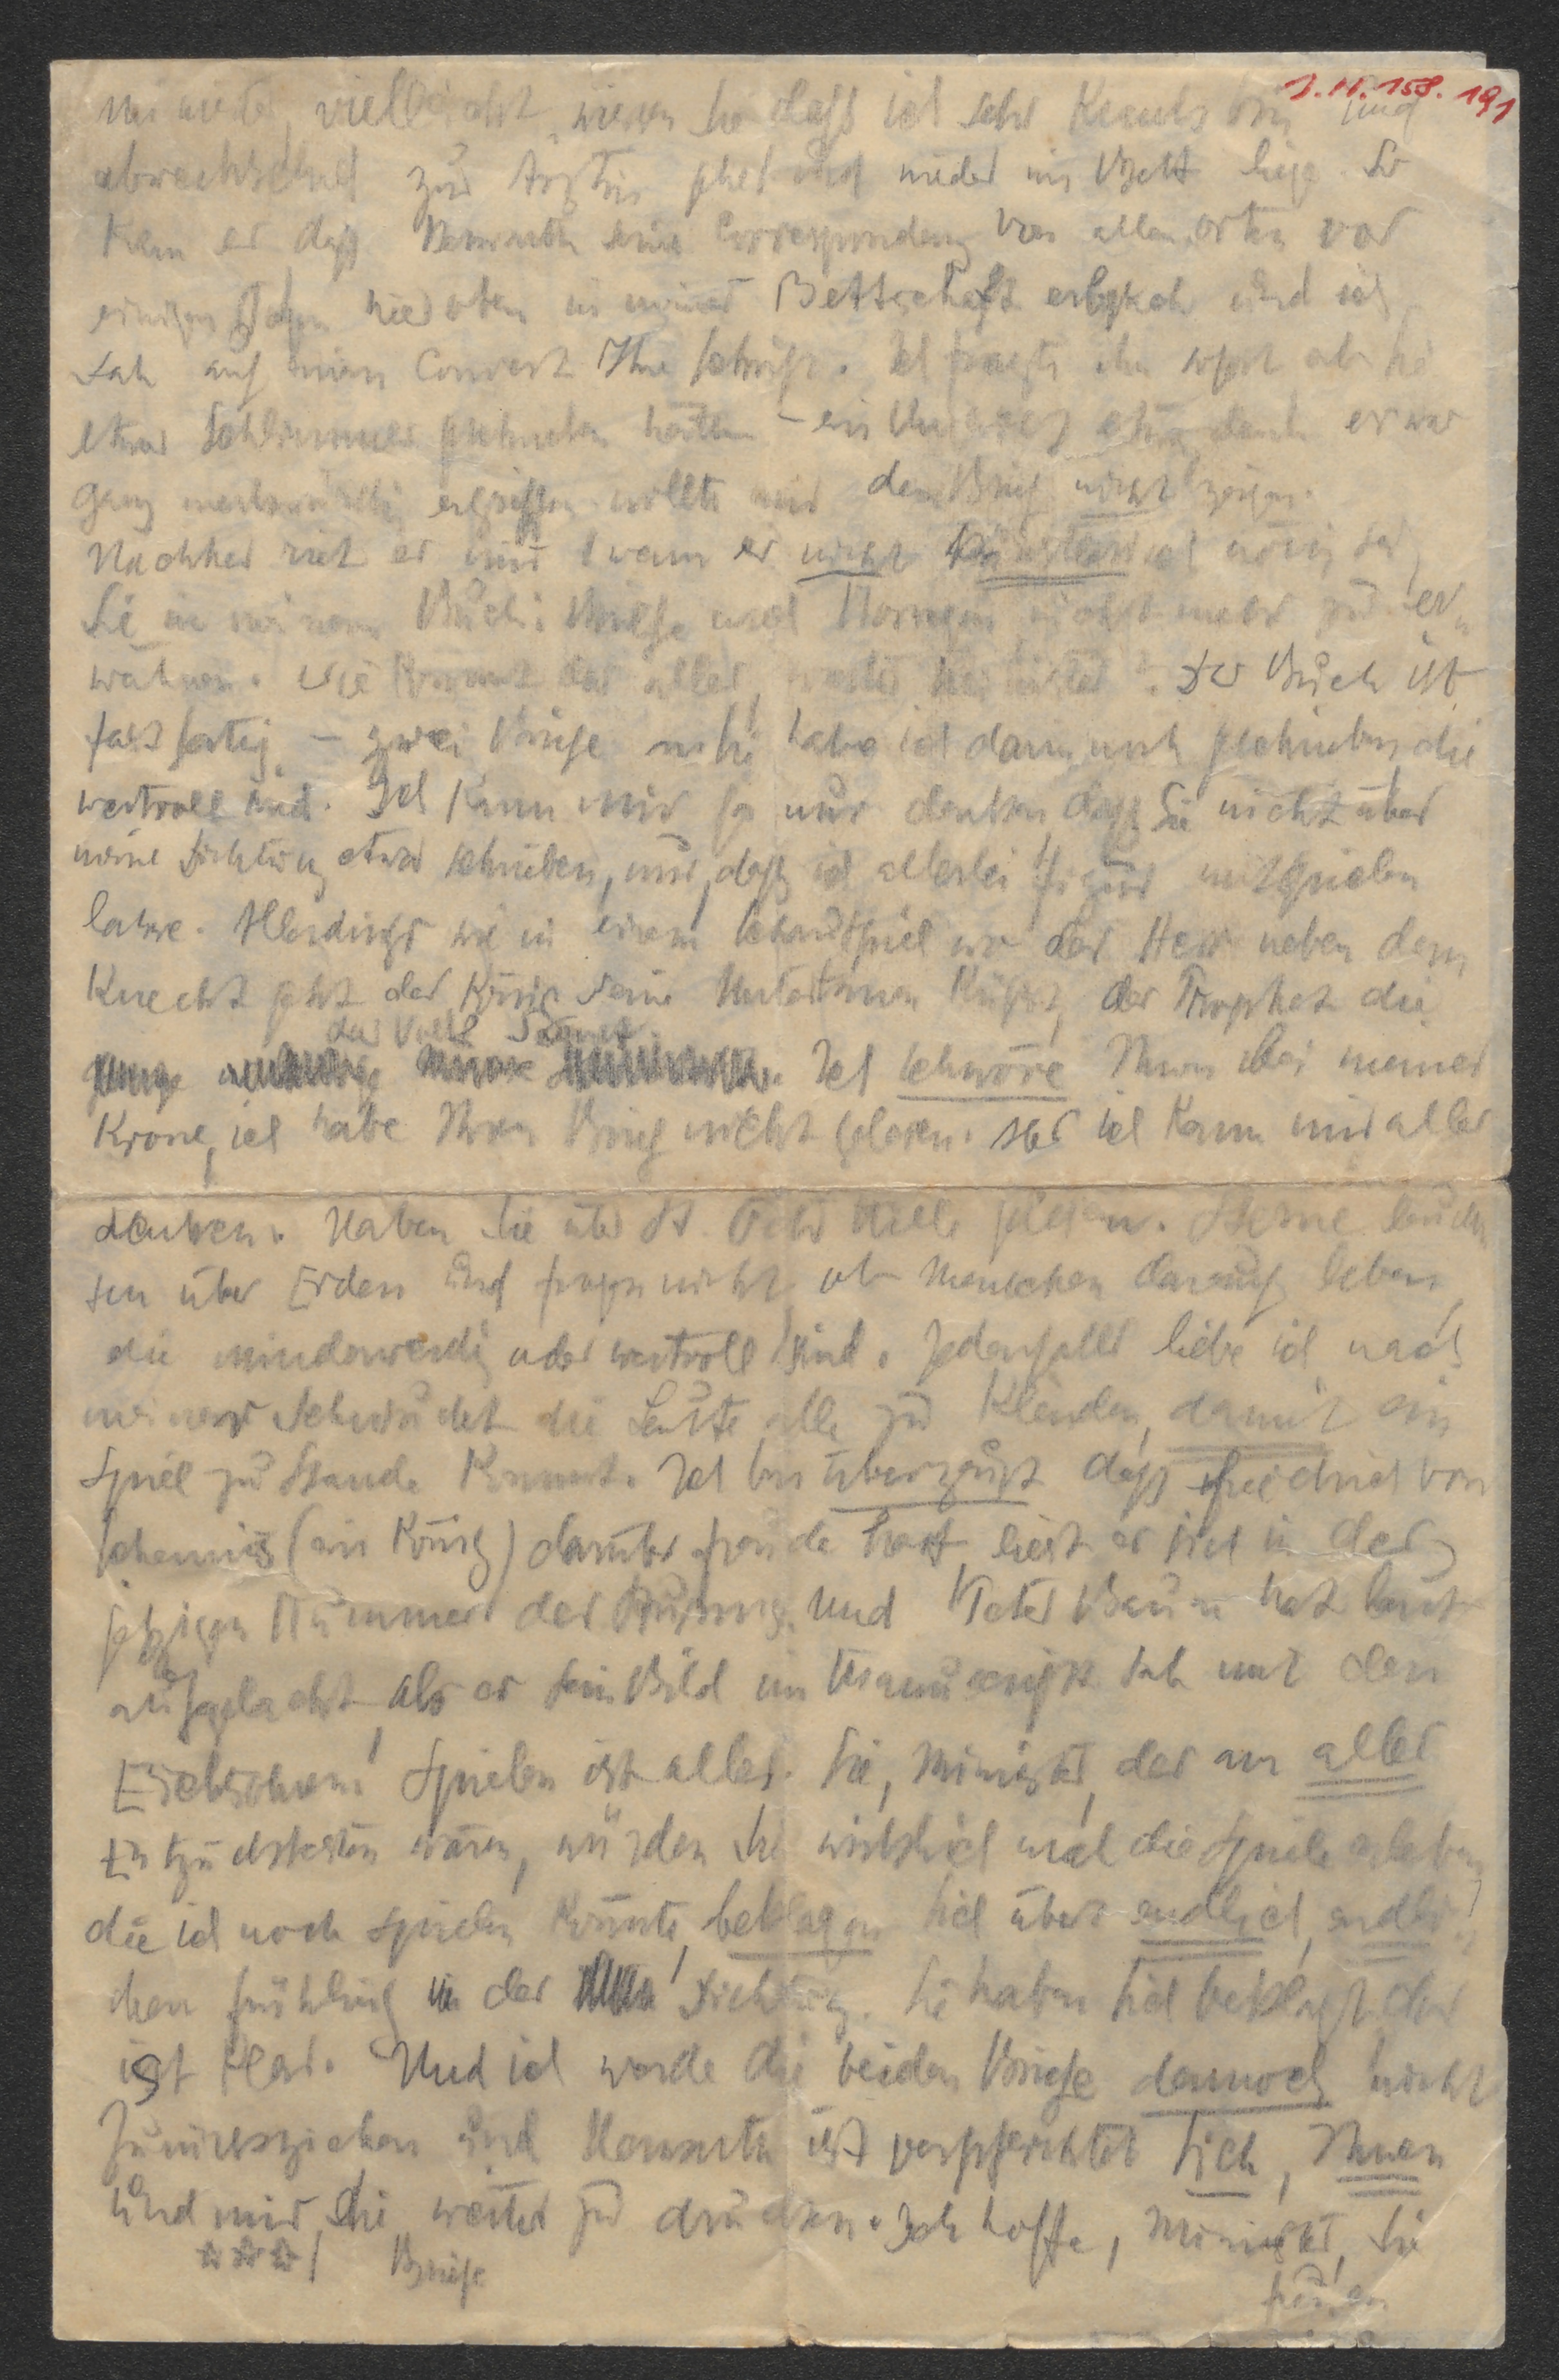 J. N. 158.191
Minister, vielleicht wissen Sie daß ich sehr krank bin und
abwechselnd zur Ärztin gehe und wieder im Bett liege. So
kam es daß Herwarth seine Correspondenz von allen Orten vor
einigen Tagen hier oben in meiner Bettschaft erbrach und ich
sah auf einem Couvert Ihre Schrift. Ich fragte ihn sofort ob Sie
etwas Schlimmes geschrieben hätten – ein Unglück etwa, denn er war
ganz merkwürdig ergriffen wollte mir den Brief nicht zeigen.
Nachher riet er mir wenn es nicht künstlerisch nötig sei,
Sie in meinem Buch: Briefe und Norwegen nicht mehr zu er-
wähnen. Wie kommt das alles, Minister? Das Buch ist
fast fertig – zwei Briefe an Sie habe ich darin noch geschrieben die
wertvoll sind. Ich kann mir ja nur denken, daß Sie nicht über
meine Dichtung etwas schrieben, nur, daß ich allerlei Figur mitspielen
lasse. Allerdings wie in einem Schauspiel wo der Herr neben dem
Knecht geht der König seine Untertanen küßt, der Prophet die
das Volk
Ich schwöre Ihnen bei meiner
Krone, ich habe Ihren Brief nicht gelesen. Aber ich kann mir alles
denken. Haben Sie über St. Peter Hille gelesen. Sterne leuch
ten über Erden und fragen nicht, ob Menschen darauf leben,
die minderwertig oder wertvoll sind. Jedenfalls liebe ich nach
meiner die Leute alle zu kleiden, damit ein
Spiel zu Stande kommt. Ich bin überzeugt daß Friedrich von
Schennis (ein König) darüber Freude hat, liest er sich in der
jetzigen Nummer des Sturms. Und Peter Baum hat laut
aufgelacht, als er sein Bild im Manuscript sah mit den
Eichhörnern! Spielen ist alles. Sie, Minister, der am aller
Entzücktesten wären, würden Sie wirklich mal die Spiele erleben,
die ich noch spielen könnte, beklagen sich über endlich, endli-
chen Frühling in der Dichtung. Sie haben sich beklagt, das
ist klar. Und ich werde die beiden Briefe dennoch nicht
zurückziehen und Herwarth ist verpflichtet sich, Ihnen
und mir, die weiter zu drucken. Ich hoffe, Minister, Sie
☆☆☆! Briefe
freuen